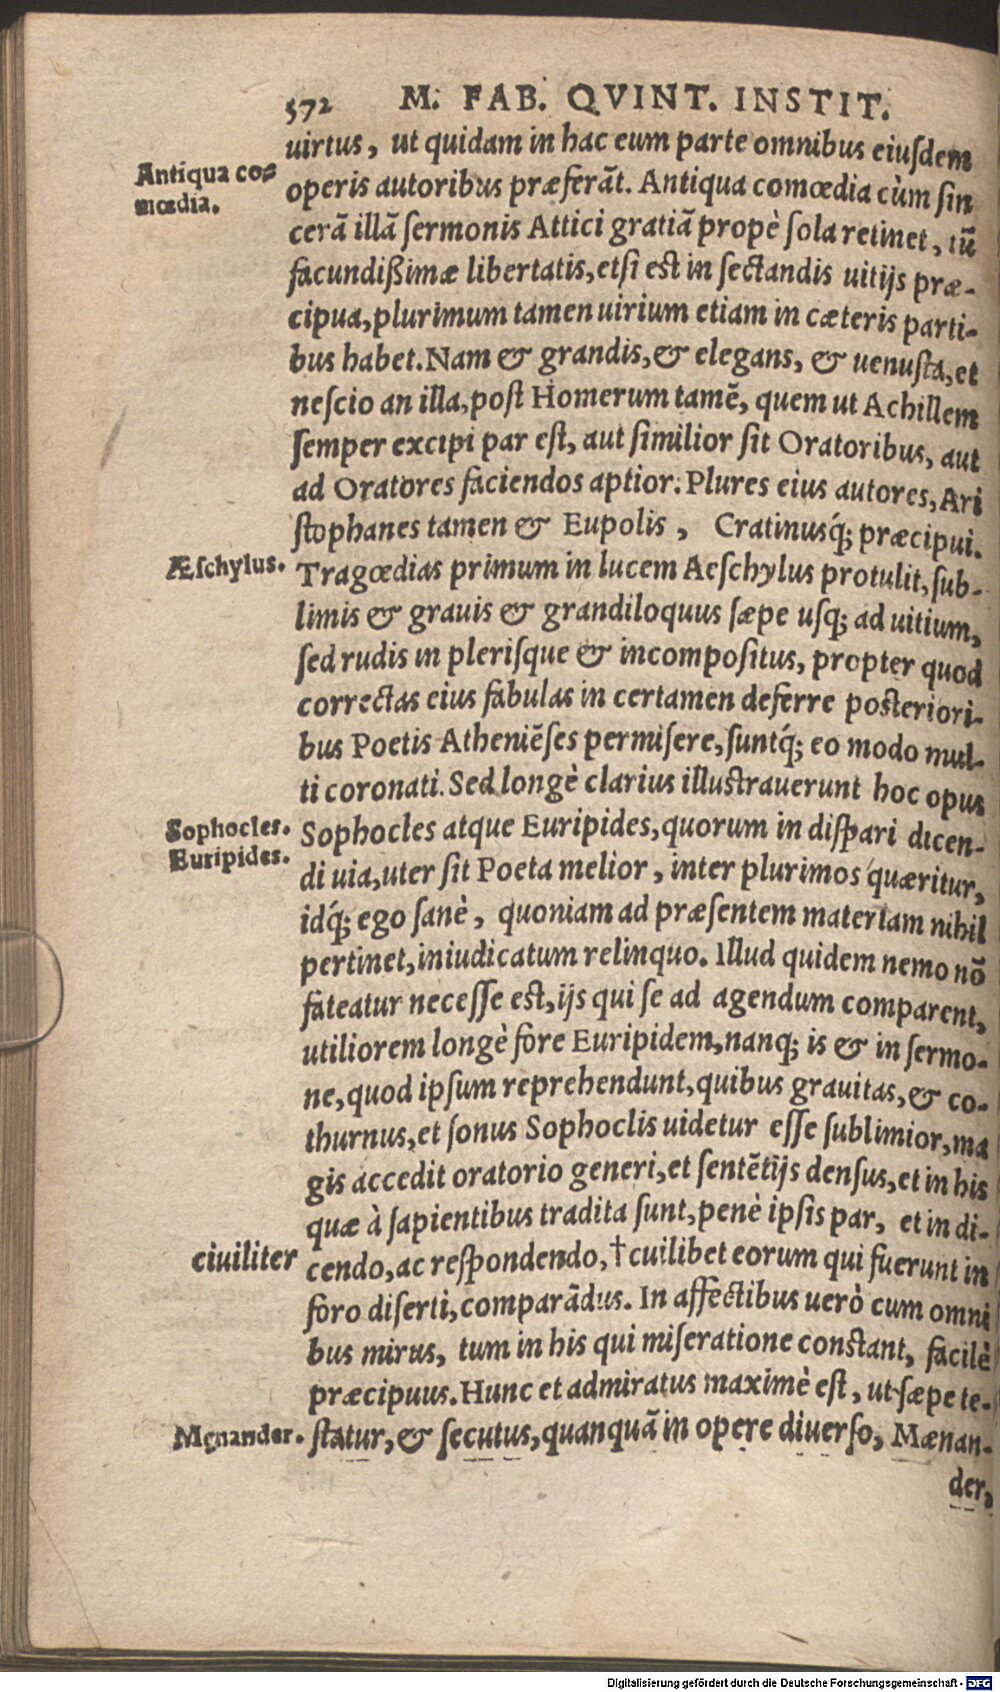 572 M. FAB. QVINT. INSTIT.
uirtus, ut quidam in hac eum parte omnibus eiuſdem
Antiqua co⸗
mœdia.
operis autoribus præferãt. Antiqua comœdia cùm ſin
cerã illã ſermonis Attici gratiã propè ſola retinet, tũ
facundißimæ libertatis, etſi est in ſectandis uitijs præ-
cipua, plurimum tamen uirium etiam in cæteris parti-
bus habet. Nam & grandis, & elegans, & uenuſta, et
neſcio an illa, poſt Homerum tamẽ, quem ut Achillem
ſemper excipi par eſt, aut ſimilior ſit Oratoribus, aut
ad Oratores faciendos aptior. Plures eius autores, Ari
ſtophanes tamen & Eupolis, Cratinusq́; præcipui.
Æſchylus.
Tragœdias primum in lucem Aeſchylus protulit, ſub-
limis & grauis & grandiloquus ſæpe uſq; ad uitium,
ſed rudis in pleriſque & incompoſitus, propter quod
correctas eius fabulas in certamen deferre posteriori-
bus Poetis Atheniẽſes permiſere, ſuntq́; eo modo mul-
ti coronati. Sed longè clarius illustrauerunt hoc opus
Sophocles.
Euripides.
Sophocles atque Euripides, quorum in diſpari dicen-
di uia, uter ſit Poeta melior, inter plurimos quæritur,
idq́; ego ſanè, quoniam ad præſentem materiam nihil
pertinet, iniudicatum relinquo. Illud quidem nemo nõ
fateatur neceſſe est, ijs qui ſe ad agendum comparent,
utiliorem longè fore Euripidem, nanq; is & in ſermo-
ne, quod ipſum reprehendunt, quibus grauitas, & co-
thurnus, et ſonus Sophoclis uidetur eſſe ſublimior, ma
gis accedit oratorio generi, et ſentẽtijs denſus, et in his
quæ à ſapientibus tradita ſunt, penè ipſis par, et in di-
ciuiliter
cendo, ac reſpondendo, †cuilibet eorum qui fuerunt in
foro diſerti, comparãdus. In affectibus uerò cum omni
bus mirus, tum in his qui miſeratione constant, facilè
præcipuus. Hunc et admiratus maximè eſt, ut ſæpe te-
Menander.
ſtatur, & ſecutus, quanquã in opere diuerſo, Mænan-
der,
Digitalisierung gefördert durch die Deutsche Forschungsgemeinschaft - DFG